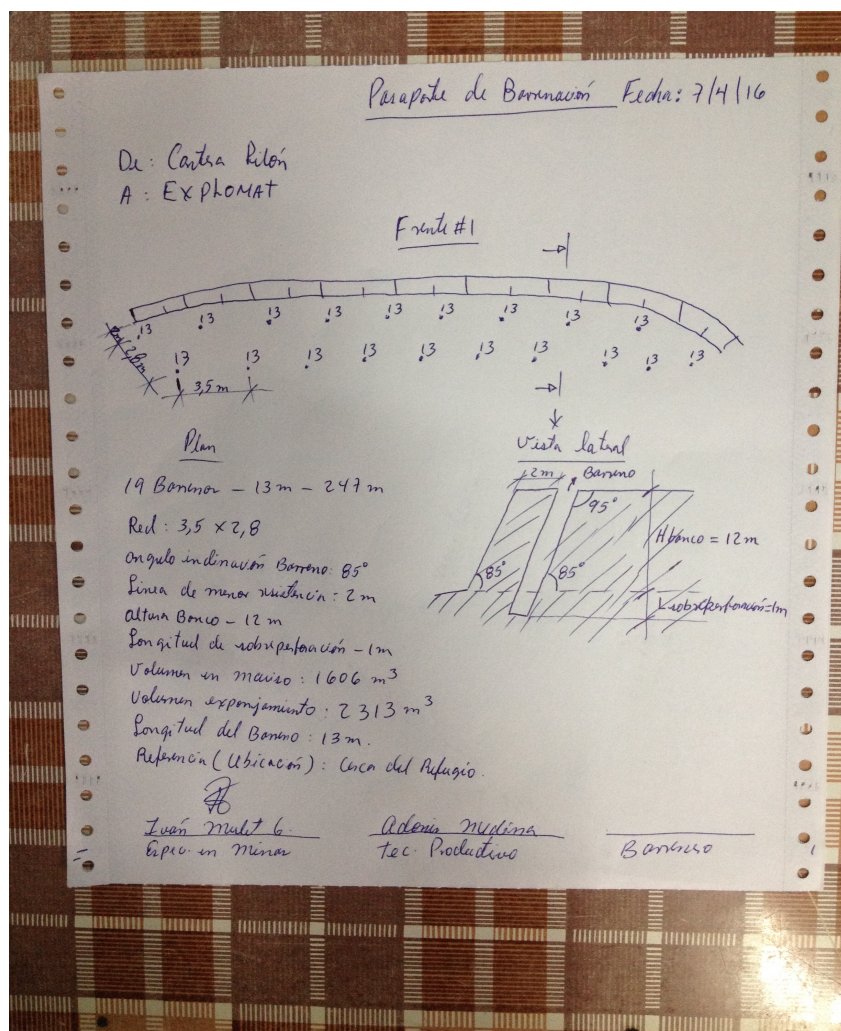 Pasaporte de Barrenación Fecha: 7/4/16
De: Cantera Pilón
A: EXPLOMAT
Frente #1
13 13 13 13 13 13 13 13 13
13 13 13 13 13 13 13 13 13 13
2,8m
3,5 m
Plan
19 Barrenos - 13m - 247 m
Red: 3,5 x 2,8
angulo inclinación Barreno: 85°
Linea de menor resistencia: 2 m
altura Banco - 12 m
Longitud de sobreperforación - 1m
Volumen en maciso: 1606 m³
Volumen esponjamiento: 2313 m³
Longitud del Barreno: 13 m.
Referencia (Ubicación): Cerca del Refugio.
Vista lateral
2m Barreno
95°
H banco = 12 m
85° 85°
L sobreperforación = 1m
Iván Mulet G.
Adonis Medina
Espec. en Minas
Tec. Productivo
Barrenero